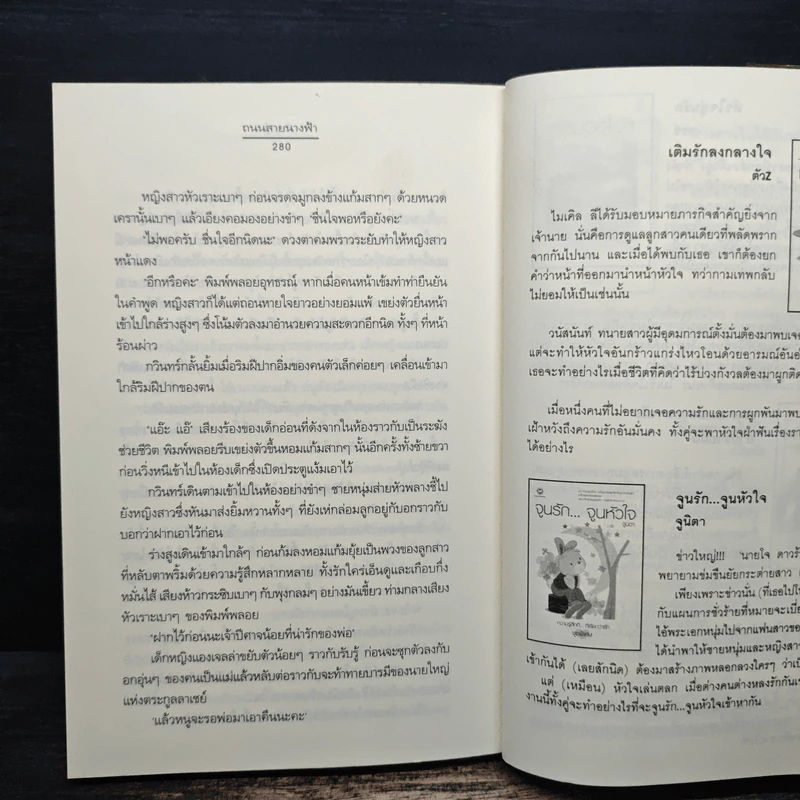 ถนนสายนางฟ้า
280
หญิงสาวหัวเราะเบาๆ ก่อนจรดจมูกลงข้างแก้มสากๆ ด้วยหนวด
เครานั้นเบาๆ แล้วเอียงคอมองอย่างขำๆ "ชื่นใจพอหรือยังคะ"
"ไม่พอครับ ชื่นใจอีกนิดนะ" ดวงตาคมพราวระยับทำให้หญิงสาว
หน้าแดง
"อีกหรือคะ" พิมพ์พลอยอุทธรณ์ หากเมื่อคนหน้าเข้มทำท่ายืนยัน
ในคำพูด หญิงสาวก็ได้แต่ถอนหายใจยาวอย่างยอมแพ้ เขย่งตัวยื่นหน้า
เข้าไปใกล้ร่างสูงๆ ซึ่งโน้มตัวลงมาอำนวยความสะดวกอีกนิด ทั้งๆ ที่หน้า
ร้อนผ่าว
กวินทร์กลั้นยิ้มเมื่อริมฝีปากอิ่มของคนตัวเล็กค่อยๆ เคลื่อนเข้ามา
ใกล้ริมฝีปากของตน
"แอ๊ะ แอ๊" เสียงร้องของเด็กอ่อนที่ดังจากในห้องราวกับเป็นระฆัง
ช่วยชีวิต พิมพ์พลอยรีบเขย่งตัวขึ้นหอมแก้มสากๆ นั้นอีกครั้งทั้งซ้ายขวา
ก่อนวิ่งหนีเข้าไปในห้องเด็กซึ่งเปิดประตูแง้มเอาไว้
กวินทร์เดินตามเข้าไปในห้องอย่างขำๆ ชายหนุ่มส่ายหัวพลางชี้ไป
ยังหญิงสาวซึ่งหันมาส่งยิ้มหวานทั้งๆ ที่ยังเห่กล่อมลูกอยู่กับอกราวกับ
บอกว่าฝากเอาไว้ก่อน
ร่างสูงเดินเข้ามาใกล้ๆ ก่อนก้มลงหอมแก้มยุ้ยเป็นพวงของลูกสาว
ที่หลับตาพริ้มด้วยความรู้สึกหลากหลาย ทั้งรักใคร่เอ็นดูและเกือบกึ่ง
หมั่นไส้ เสียงห้าวกระซิบเบาๆ กับพุงกลมๆ อย่างมันเขี้ยว ท่ามกลางเสียง
หัวเราะเบาๆ ของพิมพ์พลอย
"ฝากไว้ก่อนนะเจ้าปีศาจน้อยที่น่ารักของพ่อ"
เด็กหญิงแองเจลล่าขยับตัวน้อยๆ ราวกับรับรู้ ก่อนจะซุกตัวลงกับ
อกอุ่นๆ ของคนเป็นแม่แล้วหลับต่อราวกับจะท้าทายบารมีของนายใหญ่
แห่งตระกูลลาเซย์
'แล้วหนูจะรอพ่อมาเอาคืนนะคะ'
เติมรักลงกลางใจ
ตัวZ
ไมเคิล ลีได้รับมอบหมายภารกิจสำคัญยิ่งจาก
เจ้านาย นั่นคือการดูแลลูกสาวคนเดียวที่พลัดพราก
จากกันไปนาน และเมื่อได้พบกับเธอ เขาก็ต้องยก
คำว่าหน้าที่ออกมานำหน้าหัวใจ ทว่ากามเทพกลับ
ไม่ยอมให้เป็นเช่นนั้น
วนัสนันท์ ทนายสาวผู้มีอุดมการณ์ตั้งมั่นต้องมาพบเจอ
แต่จะทำให้หัวใจอันกร้าวแกร่งไหวโอนด้วยอารมณ์อัน
เธอจะทำอย่างไรเมื่อชีวิตที่คิดว่าไร้บ่วงกังวลต้องมาผูกติด
เมื่อหนึ่งคนที่ไม่อยากเจอความรักและการผูกพันมาพบ
เฝ้าหวังถึงความรักอันมั่นคง ทั้งคู่จะพาหัวใจฝ่าฟันเรื่องรา
ได้อย่างไร
จูนรัก... จูนหัวใจ
จูนิตา
จูนรัก...จูนหัวใจ
จูนิตา
ข่าวใหญ่!!! นายโจ ดาวร้
พยายามข่มขืนยัยกระต่ายสาว
เพียงเพราะข่าวนั่น (ที่เธอไปใ
กับแผนการชั่วร้ายที่หมายจะเบี่ย
ไอ้พระเอกหนุ่มไปจากแฟนสาวขอ
ได้นำพาให้ชายหนุ่มและหญิงสา
เข้ากันได้ (เลยสักนิด) ต้องมาสร้างภาพหลอกลวงใครๆ ว่าเป็
แต่ (เหมือน) หัวใจเล่นตลก เมื่อต่างคนต่างหลงรักกันเ
งานนี้ทั้งคู่จะทำอย่างไรที่จะจูนรัก...จูนหัวใจเข้าหากัน